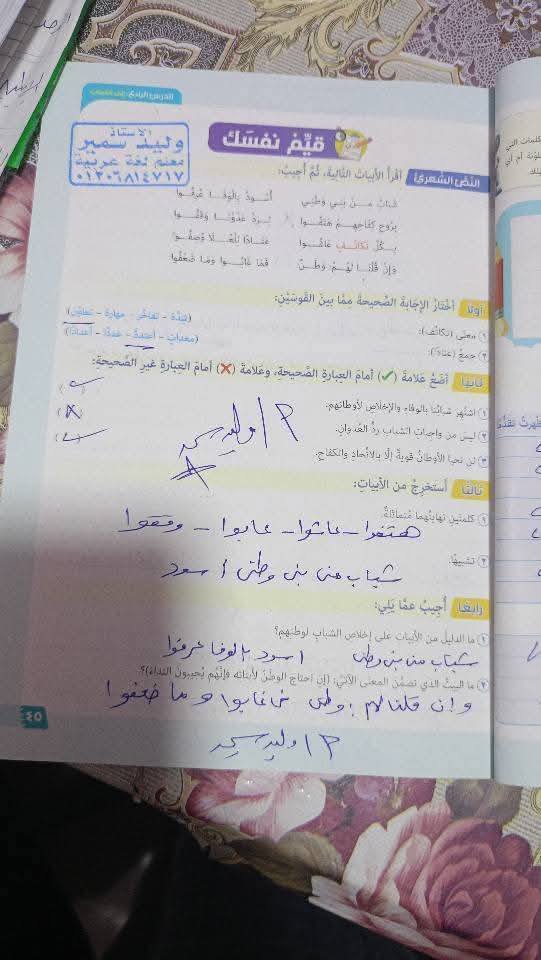 الأستاذ
وليد سمير
معلم لغة عربية
٠١٢٠٦٨١٤٧١٧
قيِّم نفسَك
النَّصُّ الشِّعريُّ اقْرأ الأبياتَ التَّاليةَ، ثُمَّ أُجيبُ:
شَبَابٌ مِنْ بَنِي وَطَنِي أُسُودٌ بِالْوَفَا عُرِفُوا
بِرُوحِ كِفَاحِهِمْ هَتَفُوا لِرَدِّ عَدُوِّنَا وَقَفُوا
بِكُلِّ تَكَاتُفٍ عَاشُوا عَتَادًا لِلْعُلَا وُصِفُوا
وَإِنْ قُلْنَا لَهُمْ: وَطَنٌ فَمَا غَابُوا وَمَا ضَعُفُوا
أولًا أختارُ الإجابةَ الصَّحيحةَ مِمَّا بينَ القوسَيْنِ:
١ معنى (تكاتُف): (شِدَّة - تفاخُر - مهارة - تعاوُن)
٢ جمعُ (عَتَاد): (معدات - أعتدة - - أعدادًا)
ثانيًا أضعُ علامةَ (✓) أمامَ العبارةِ الصَّحيحةِ، وعلامةَ (✗) أمامَ العبارةِ غيرِ الصَّحيحةِ:
١ اشتُهِر شبابُنا بالوفاء والإخلاصِ لأوطانهم. (✓)
٢ ليسَ من واجباتِ الشبابِ ردُّ العُدوانِ. (X)
٣ لن تحيا الأوطانُ قويةً إلَّا بالاتِّحادِ والكفاحِ. (✓)
أ/ وليد سمير
ثالثًا أستخرجُ من الأبياتِ:
١ كلمتَينِ نهايتُهما مُتماثلةٌ.
هتفوا - عاشوا - غابوا - وقفوا
٢ تشبيهًا.
شباب من بنى وطنى أسود
رابعًا أُجيبُ عمَّا يَلِي:
١ ما الدليلُ من الأبياتِ على إخلاصِ الشبابِ لوطنِهم؟
شباب من بنى وطنى أسود بالوفا عرفوا
٢ ما البيتُ الذي تضمَّنَ المعنى الآتيَ: (إن احتاجَ الوطنُ لأبنائه فإنَّهم يُجيبونَ النداءَ)؟
وإن قلنا لهم: وطن فما غابوا وما ضعفوا
٤٥
أ/ وليد سمير